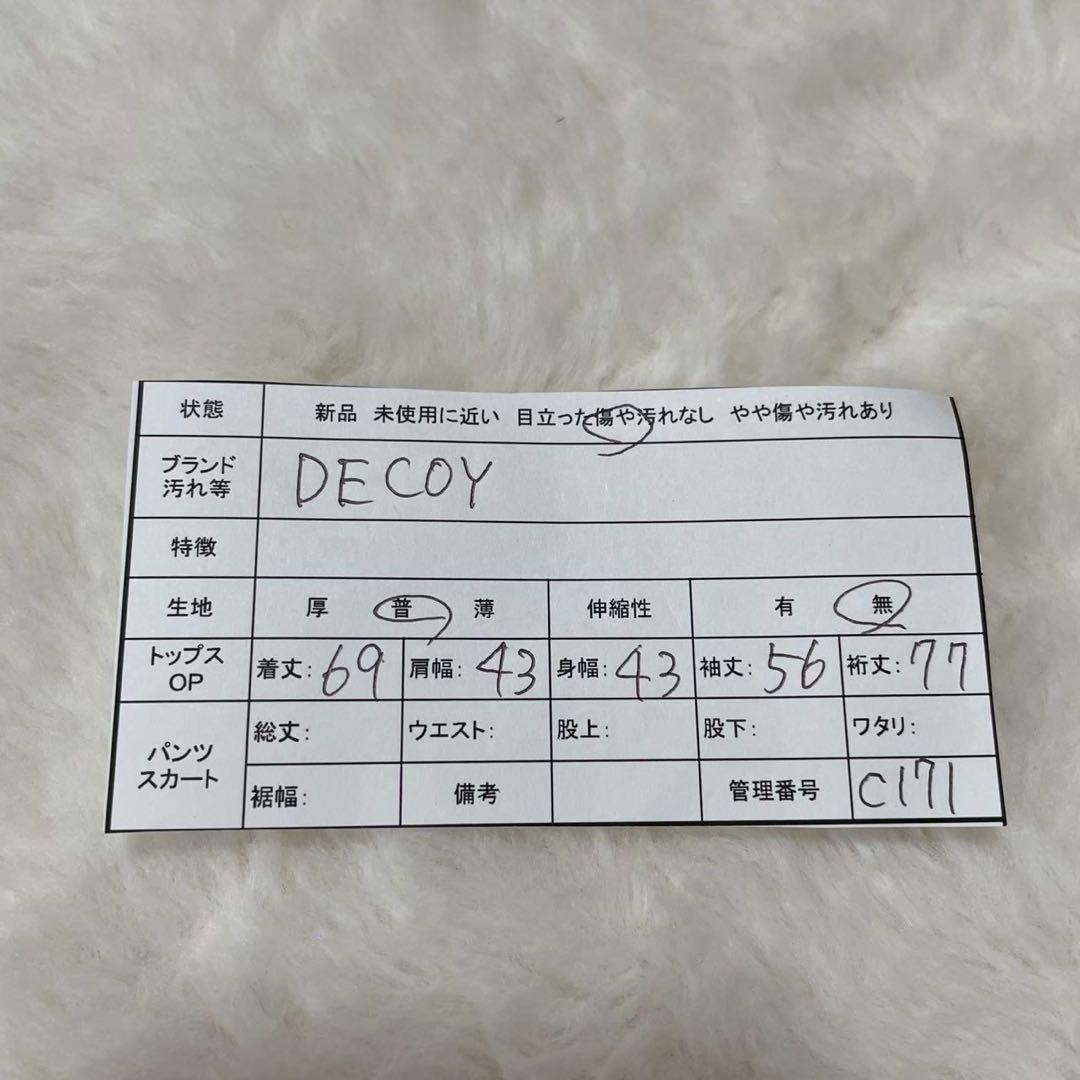 状態 新品 未使用に近い 目立った傷や汚れなし やや傷や汚れあり
ブランド
汚れ等 DECOY
特徴
生地 厚 普 薄 伸縮性 有 無
トップス
OP 着丈: 69 肩幅: 43 身幅: 43 袖丈: 56 裄丈: 77
パンツ
スカート 総丈: ウエスト: 股上: 股下: ワタリ:
裾幅: 備考 管理番号 C171